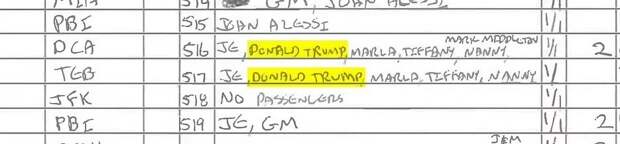 MIA 514 GM, JOHN ALESSI
PBI 515 JOAN ALESSI
MARK MIDDLETON
DCA 516 JE, DONALD TRUMP, MARLA, TIFFANY, NANNY, 1/1 2
TEB 517 JE, DONALD TRUMP, MARLA, TIFFANY, NANNY 1/1
JFK 518 NO PASSENGERS 1/1
PBI 519 JE, GM 1/1 2
JEM